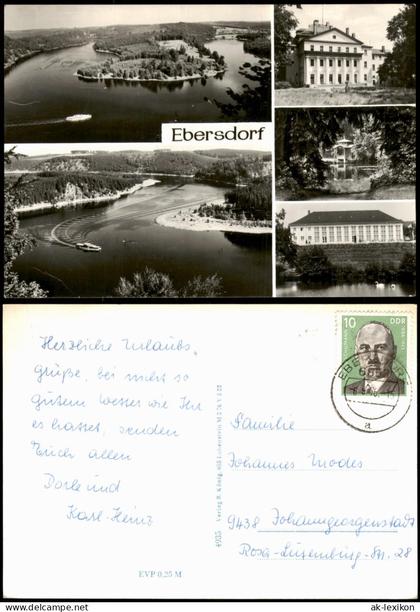 Ebersdorf
Herzliche Urlaubs,
grüße, bei nicht so
gutem Wetter wie Ihr
es hattet, senden
Euch allen
Dorle und
Karl-Heinz
EVP 0,25 M
4935 Verlag R. König, 485 Lobenstein
10 DDR
EBERSDORF
a
Familie
Johannes Modes
9438 Johanngeorgenstadt
Rosa-Luxemburg-Str. 28
www.ansichtskarten-lexikon.de
ak-lexikon.de